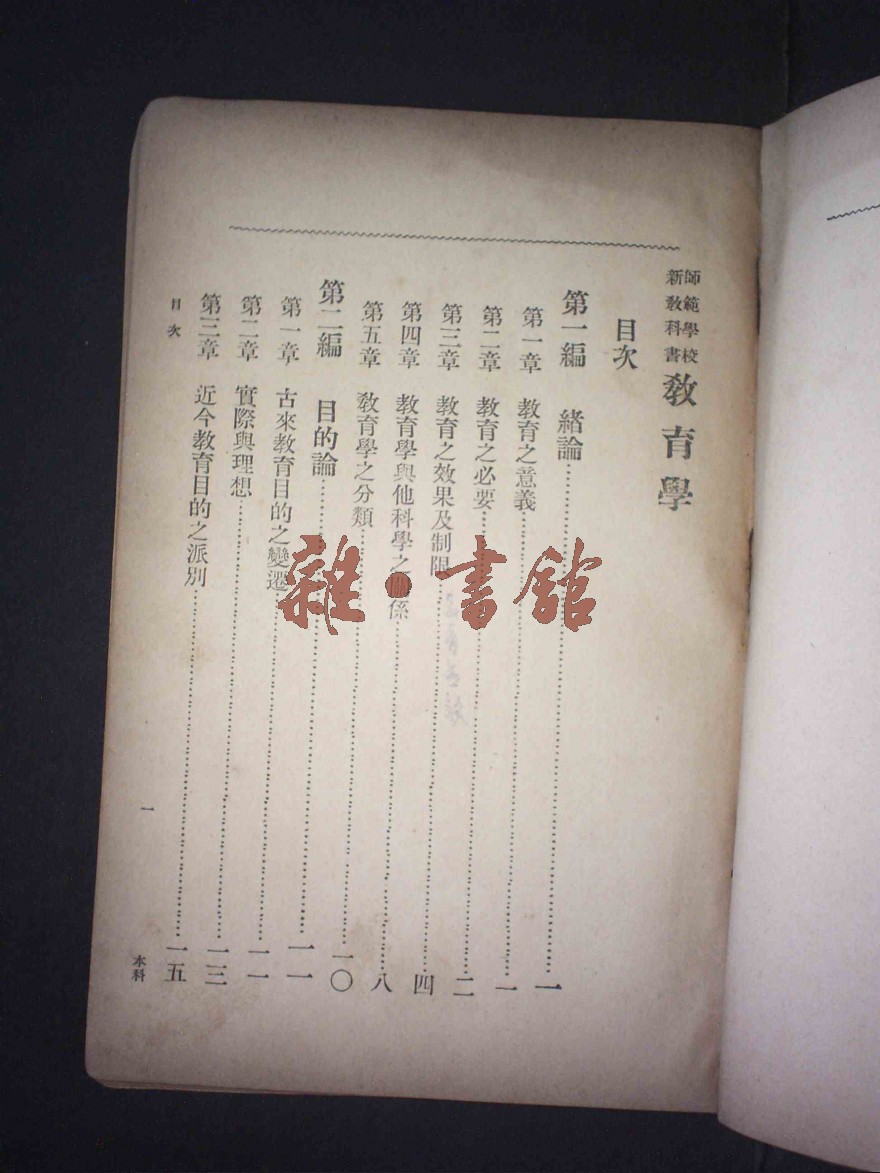 師範學校
新教科書
教育學
目次
第一編　緒論……一
第一章　教育之意義……一
第二章　教育之必要……二
第三章　教育之效果及制限……四
第四章　教育學與他科學之關係……八
第五章　教育學之分類……一〇
第二編　目的論……一一
第一章　古來教育目的之變遷……一一
第二章　實際與理想……一三
第三章　近今教育目的之派別……一五
目次
一
本科
雜·書館